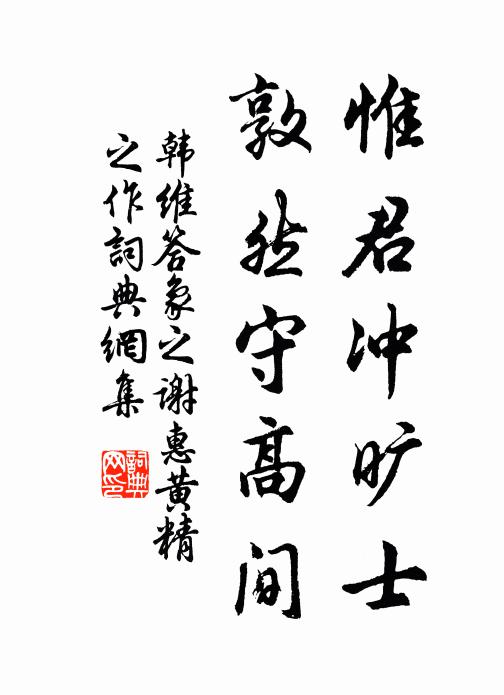 惟君冲旷士
敦然守高间
韩维答象之谢惠黄精
之作詞典網集
詞典
网印